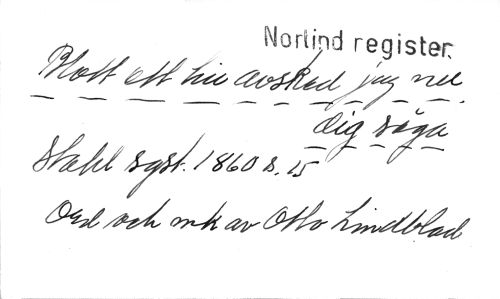 Norlind register.
Blott ett litet avsked jag nu
dig säga
Stahl sgst. 1860 s. 15
Ord och mk av Otto Lindblad